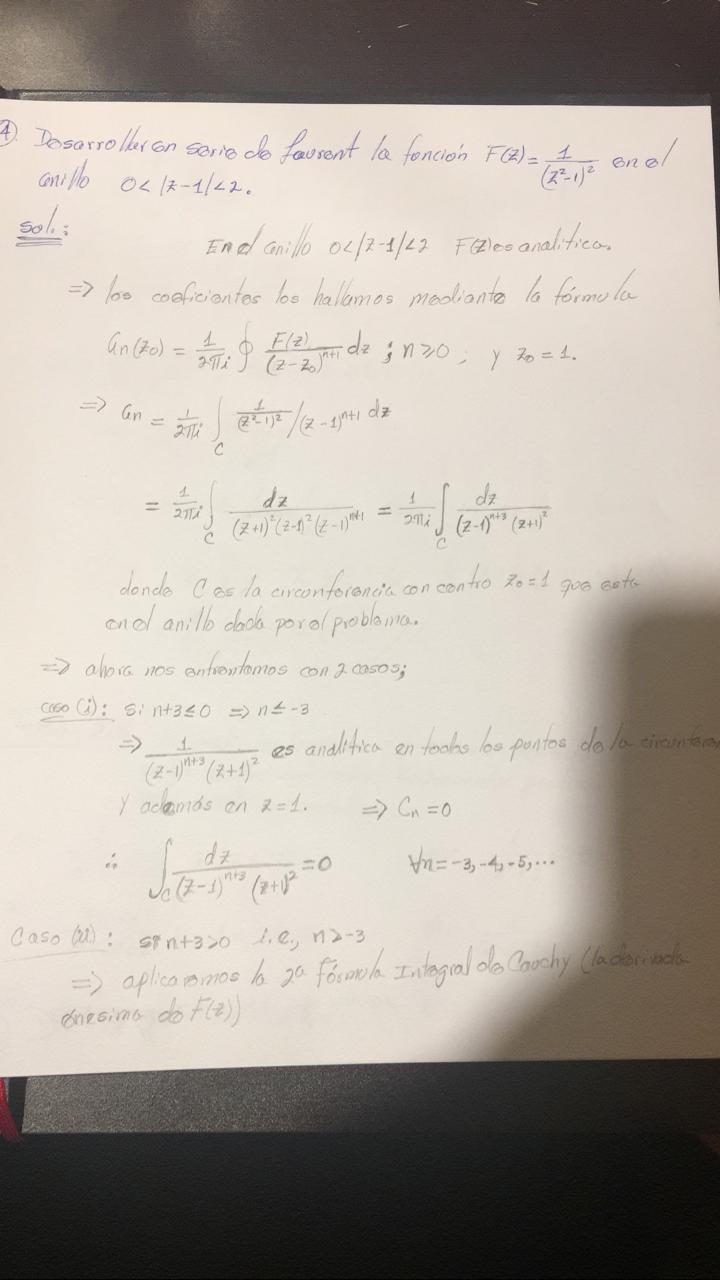 4) Desarrollar en serie de Laurent la función F(z) = 1/(z²-1)² en el
anillo 0<|z-1|<2.
Sol.:
En el anillo 0<|z-1|<2 F(z) es analítica.
=> los coeficientes los hallamos mediante la fórmula
an(z0) = 1/2πi ∮ F(z)/(z-z0)^{n+1} dz ; n≥0 ; y z0 = 1.
=> an = 1/2πi ∫_C 1/(z²-1)² /(z-1)^{n+1} dz
= 1/2πi ∫_C dz/(z+1)²(z-1)²(z-1)^{n+1} = 1/2πi ∫_C dz/(z-1)^{n+3}(z+1)²
donde C es la circunferencia con centro z0=1 que esta
en el anillo dada por el problema.
=> ahora nos enfrentamos con 2 casos;
caso (i): si n+3≤0 => n≤-3
=> 1/(z-1)^{n+3}(z+1)² es analítica en todos los puntos de la
y además en z=1. => Cn=0
∴ ∫_C dz/(z-1)^{n+3}(z+1)² =0 ∀n=-3,-4,-5,...
Caso (ii): si n+3>0 i.e., n>-3
=> aplicaremos la 2ª fórmula Integral de Cauchy (la derivada
énesima de F(z))